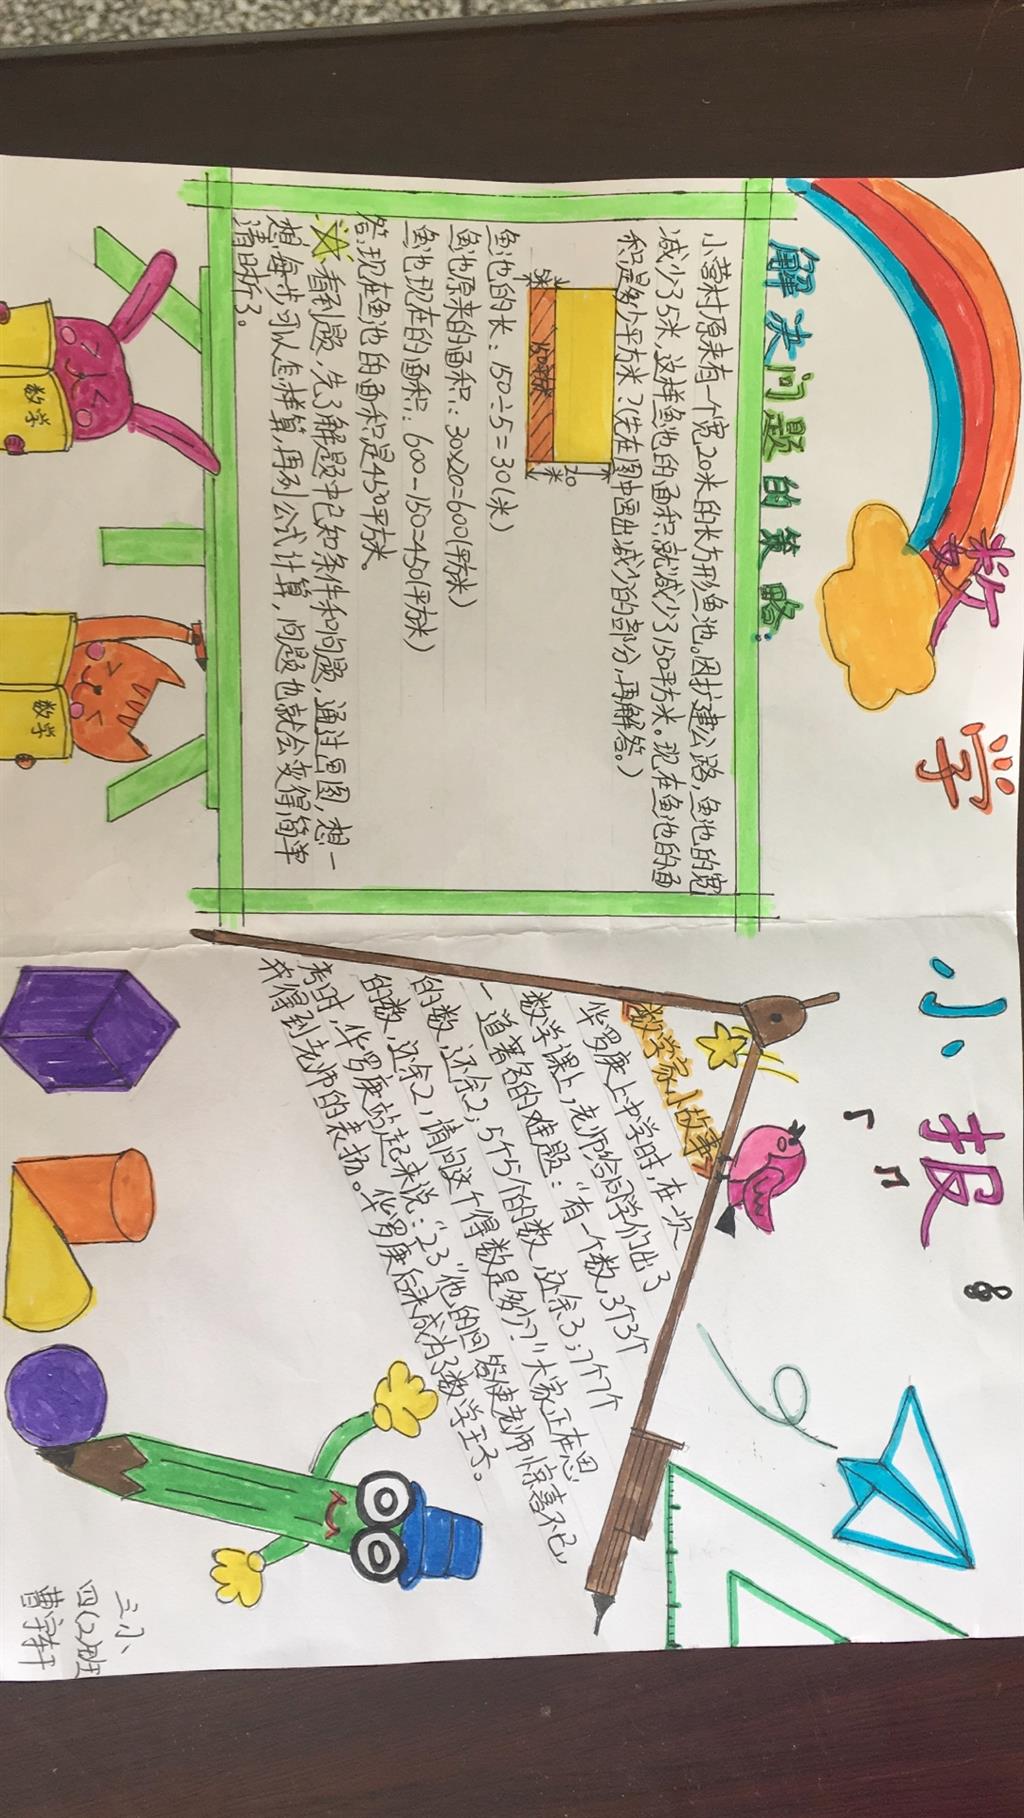 数学小报
解决问题的策略
小营村原来有一个宽20米的长方形鱼池。因扩建公路,鱼池的宽
减少了5米,这样鱼池的面积就减少了150平方米。现在鱼池的面
积是多少平方米?(先在图中画出减少的部分,再解答。)
20米
5米
150平方米
鱼池的长:150÷5=30(米)
鱼池原来的面积:30×20=600(平方米)
鱼池现在的面积:600-150=450(平方米)
答:现在鱼池的面积是450平方米。
看到题,先了解题中已知条件和问题,通过画图,想一
想,每步可以怎样算,再列公式计算,问题也就会变得简单
清晰了。
数学
数学
数学家小故事
华罗庚上中学时,在一次
数学课上,老师给同学们出了
一道著名的难题:“有一个数,3个3个
的数,还余2;5个5个的数,还余3;7个7个
的数,还余2,请问这个得数是多少?”大家正在思
考时,华罗庚站起来说:“23”他的回答使老师惊喜不已,
获得到老师的表扬。华罗庚后来成为了数学王子。
三小
四(2)班
曹宇轩